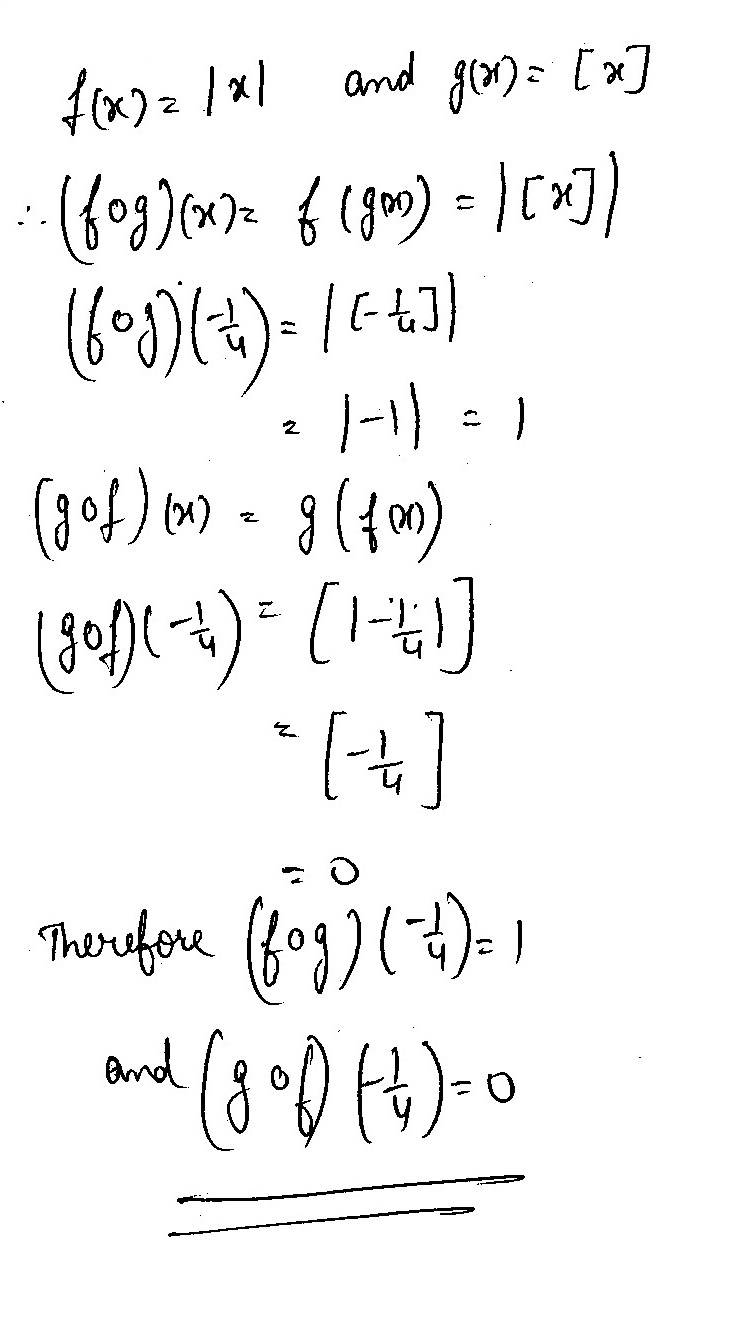 f(x) = |x| and g(x) = [x]
∴ (fog)(x) = f(g(x)) = |[x]|
(fog)(-1/4) = |[-1/4]|
= |-1| = 1
(gof)(x) = g(f(x))
(gof)(-1/4) = [|-1/4|]
= [-1/4]
= 0
Therefore (fog)(-1/4) = 1
and (gof)(-1/4) = 0